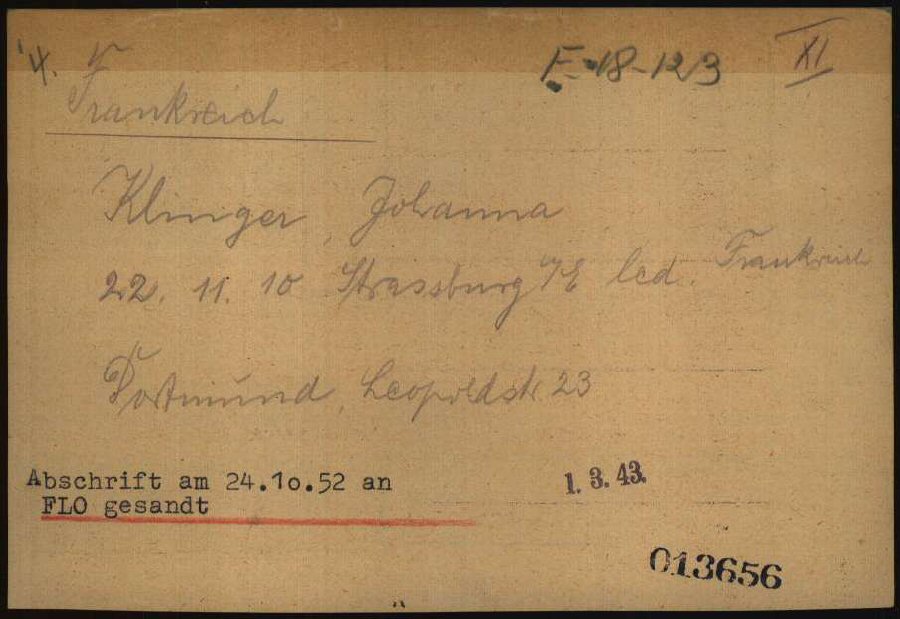 4. F 18-123 XI
Frankreich
Klinger, Johanna
22. 11. 10 Strassburg i/E led. Frankreich
Dortmund, Leopoldstr. 23
Abschrift am 24.1o.52 an
FLO gesandt
1. 3. 43.
013656